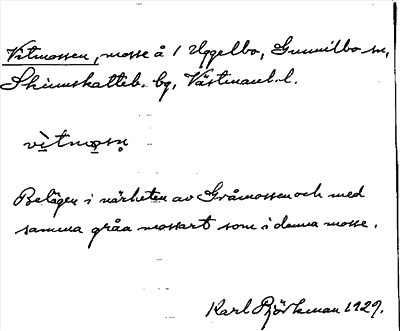 Vitmossen, mosse å 1 Uggelbo, Gunnilbo sn,
Skinnskatteb. bg, Västmanl. l.
vìtmosn̥
Belägen i närheten av Gråmossen och med
samma gråa mossart som i denna mosse.
Karl Björkman 1929.